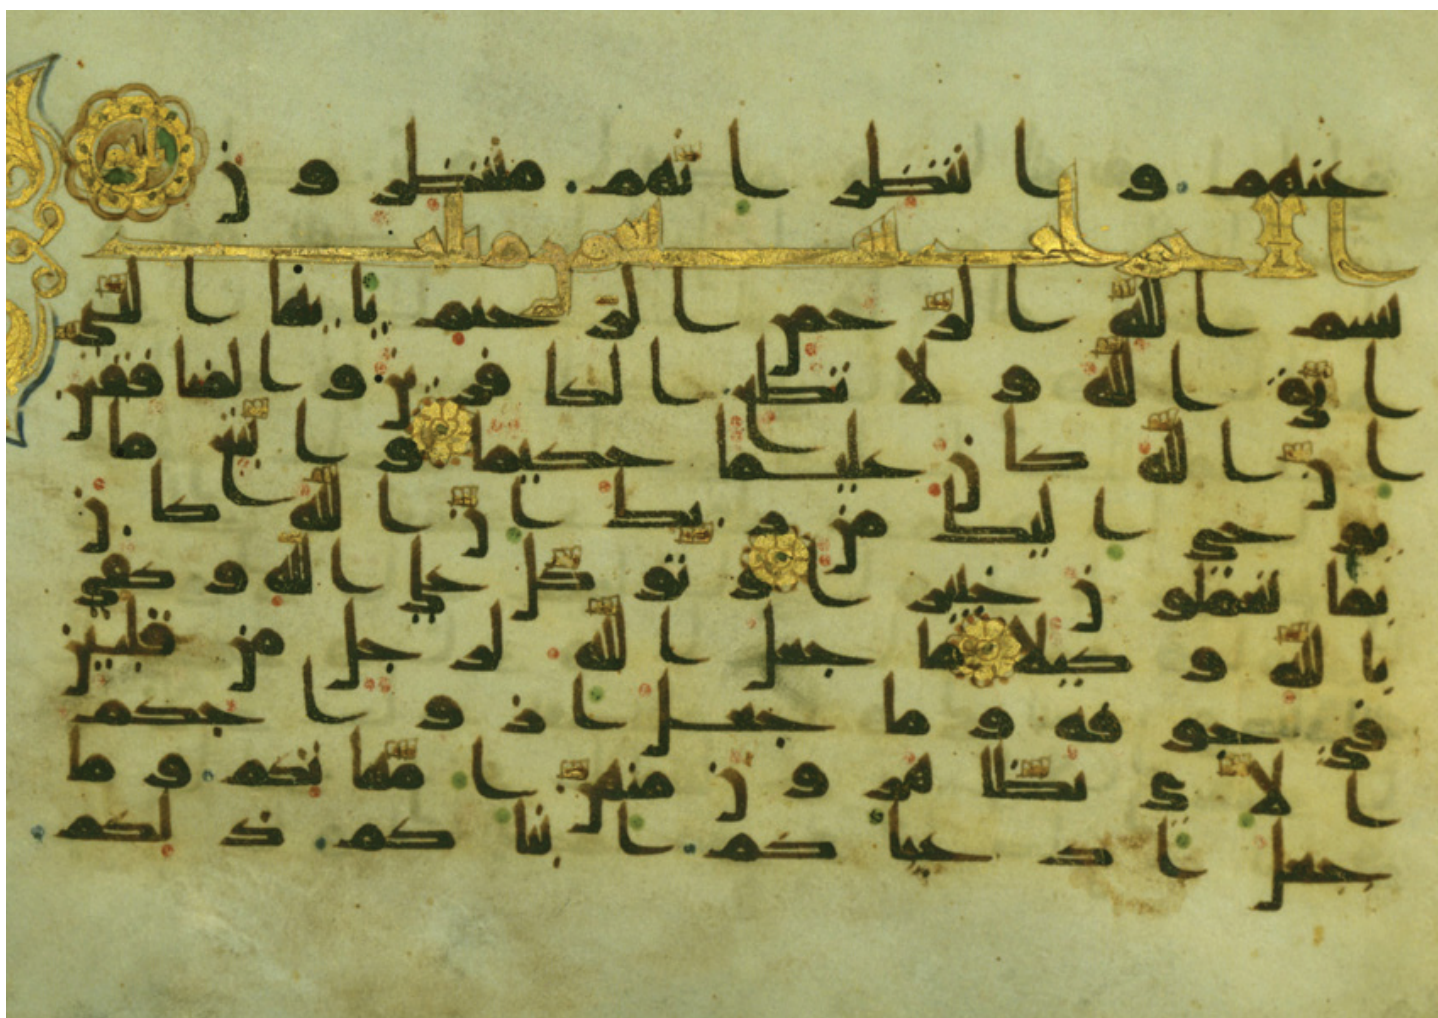 عنهم وانتظر انهم منتظرون
بسم الله الرحمن الرحيم يايها النبي
اتق الله ولا تطع الكفرين والمنفقين
ان الله كان عليما حكيما واتبع ما
يوحى اليك من ربك ان الله كان
بما تعملون خبيرا وتوكل على الله وكفى
بالله وكيلا ما جعل الله لرجل من قلبين
في جوفه وما جعل ازوجكم
الاى تظهرون منهن امهتكم وما
جعل ادعياكم ابناكم ذلكم